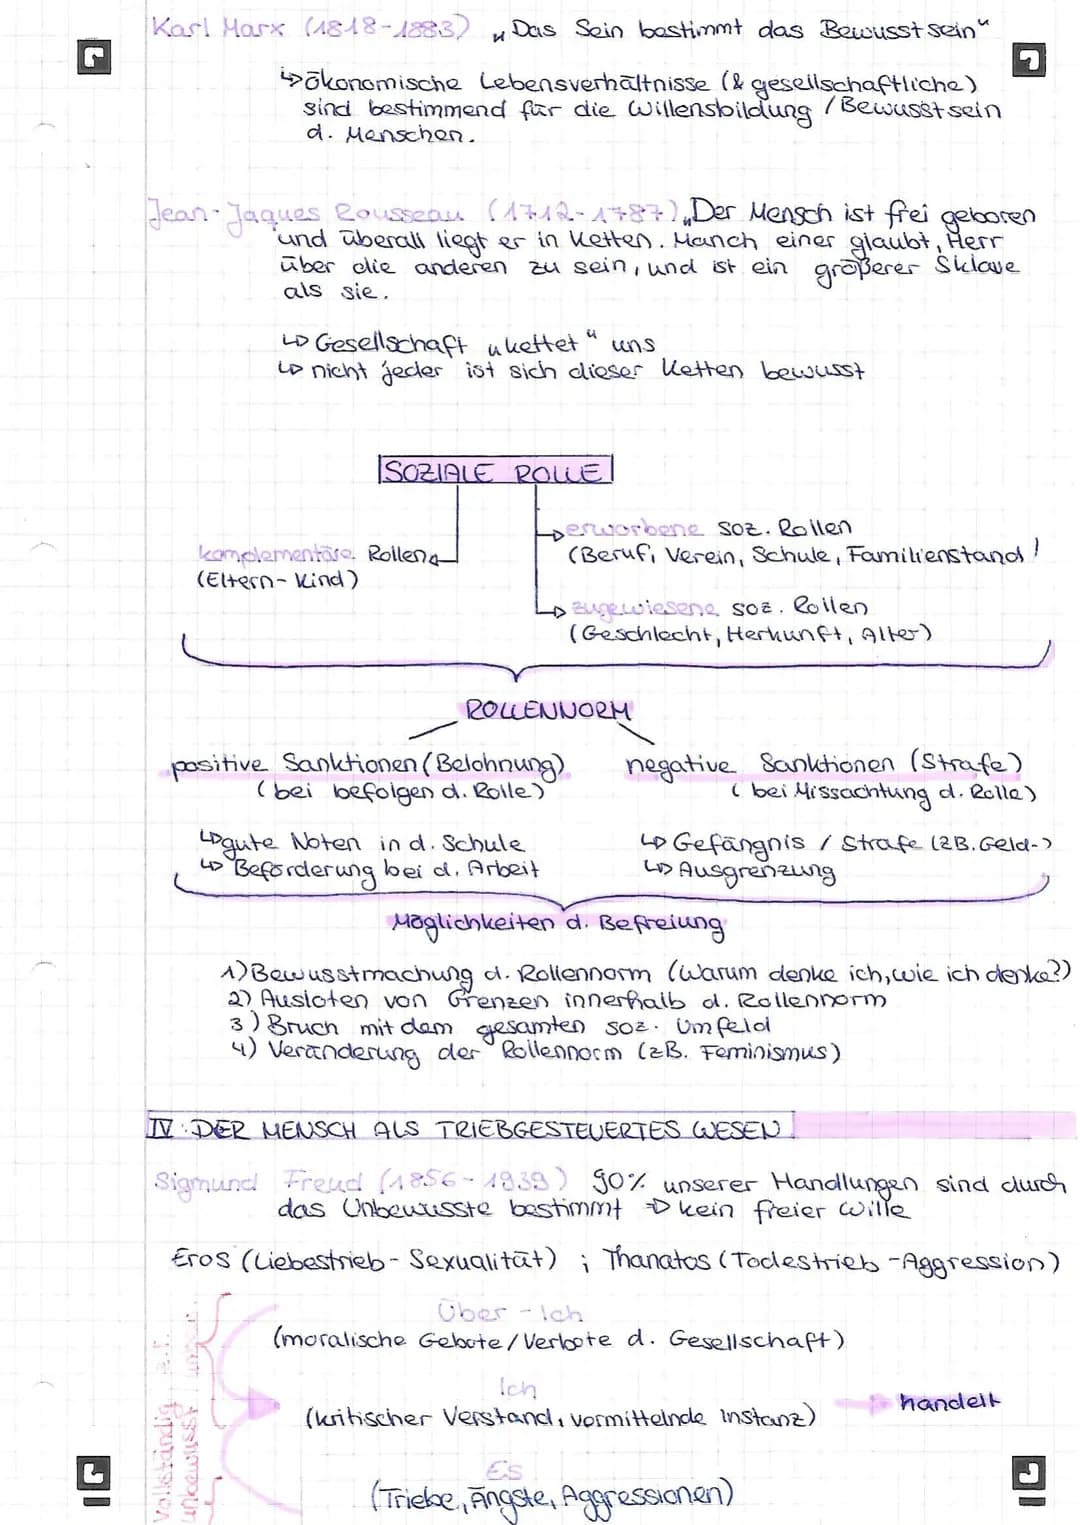 Karl Marx (1818-1883) „Das Sein bestimmt das Bewusstsein“
↳ökonomische Lebensverhältnisse (& gesellschaftliche)
sind bestimmend für die Willensbildung / Bewusstsein
d. Menschen.
Jean-Jaques Rousseau (1712-1787) „Der Mensch ist frei geboren
und überall liegt er in Ketten. Manch einer glaubt, Herr
über die anderen zu sein, und ist ein größerer Sklave
als sie.
↳ Gesellschaft „kettet“ uns
↳ nicht jeder ist sich dieser Ketten bewusst
SOZIALE ROLLE
erworbene soz. Rollen
komplementäre Rollen
(Beruf, Verein, Schule, Familienstand)
(Eltern-Kind)
zugewiesene soz. Rollen
(Geschlecht, Herkunft, Alter)
ROLLENNORM
positive Sanktionen (Belohnung)
negative Sanktionen (Strafe)
(bei befolgen d. Rolle)
(bei Missachtung d. Rolle)
↳gute Noten in d. Schule
↳ Gefängnis / Strafe (zB. Geld-)
↳ Beförderung bei d. Arbeit
↳ Ausgrenzung
Möglichkeiten d. Befreiung
1) Bewusstmachung d. Rollennorm (Warum denke ich, wie ich denke?)
2) Ausloten von Grenzen innerhalb d. Rollennorm
3) Bruch mit dem gesamten soz. Umfeld
4) Veränderung der Rollennorm (zB. Feminismus)
IV. DER MENSCH ALS TRIEBGESTEUERTES WESEN
Sigmund Freud (1856-1939) 90% unserer Handlungen sind durch
das Unbewusste bestimmt → kein freier Wille
Eros (Liebestrieb - Sexualität) ; Thanatos (Todestrieb - Aggression)
Über-Ich
(moralische Gebote/Verbote d. Gesellschaft)
Ich
(kritischer Verstand, vermittelnde Instanz)
handelt
Es
(Triebe, Ängste, Aggressionen)
vollständig
unbewusst
z.T.